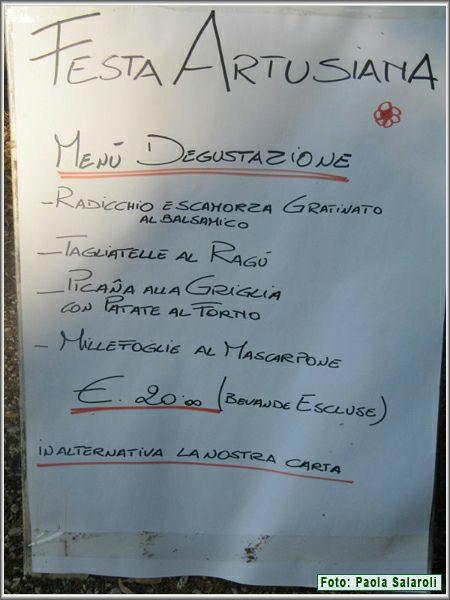 FESTA ARTUSIANA
MENÚ DEGUSTAZIONE
- RADICCHIO E SCAMORZA GRATINATO
AL BALSAMICO
- TAGLIATELLE AL RAGÚ
- PICAÑA ALLA GRIGLIA
CON PATATE AL FORNO
- MILLEFOGLIE AL MASCARPONE
€. 20.00 (BEVANDE ESCLUSE)
IN ALTERNATIVA LA NOSTRA CARTA
Foto: Paola Salaroli